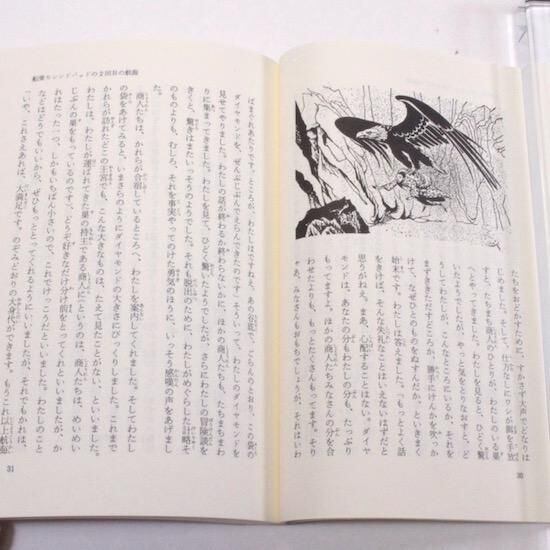 たちをおどかすために、すかさず大声でどなりは
じめました。そして、仕方なしにワシが餌を手放
すと、たちまち商人のひとりが、わたしのいる巣
へとやってきました。わたしを見ると、ひどく驚
きましたが、やっと気をとりなおすと、ど
うしてわたしが、こんなところにいるか、それを
まずききただすどころか、勝手にけんかを吹っか
けて、なぜひとのものをぬすんだか、といきまく
始末です。わたしは答えました。『もっとよく話
をきけば、そんな失礼なことはいえないはずだと
思うがねえ。まあ、心配することはない。ダイヤ
モンドは、あなたの分もわたしの分も、たっぷり
もってますよ。ほかの商人たちみなさんの分を合
わせたよりも、もっとたくさんもっています。そり
ゃあ、みなさんおもちでも、それはいわ
30
船乗りシンドバッドの2回目の航海
ばまぐれあたりです。ところが、わたしはですねえ、あの谷底で、ごらんのとおり、この袋の
ダイヤモンドを、ぜんぶじぶんでえらんできたのです』そういって、わたしのダイヤモンドを
見せてやりました。わたしの話が終わるか終わらないかに、ほかの商人たちも、たちまちまわ
りに集まってきました。わたしを見て、ひどく驚いたようでしたが、さらにわたしの冒険談を
きくと、驚きはまたいっそうのようでした。それも脱出のために、わたしがめぐらした計略そ
のものよりも、むしろ、それを事実やってのけた勇気のほうに、いっそう感嘆の声をあげまし
た。
商人たちは、かれらが合宿しているところへ、わたしを案内してくれました。そしてわたし
の袋をあけてみると、いまさらのようにダイヤモンドの大きさにびっくりしました。これまで
かれらが訪れたどこの王宮でも、こんな大きなものは、たえて見たことがない、といいました。
わたしは、わたしが運ばれてきた巣の持主である商人に（というのは、商人たちは、めいめい
じぶんの巣をもっているのです）、どうぞ好きなだけ分け前をとってくれといいましたが、か
れはたった一つ、しかもいちばん小さいので、これでけっこうだといいました。わたしのこと
などはどうでもいいから、ぜひもっととってくれるようにいいましたが、それでもかれは、
『いや、これさえあれば、大満足です。のぞみどおりの大身代ができましょう。もうこれ以上航海
31